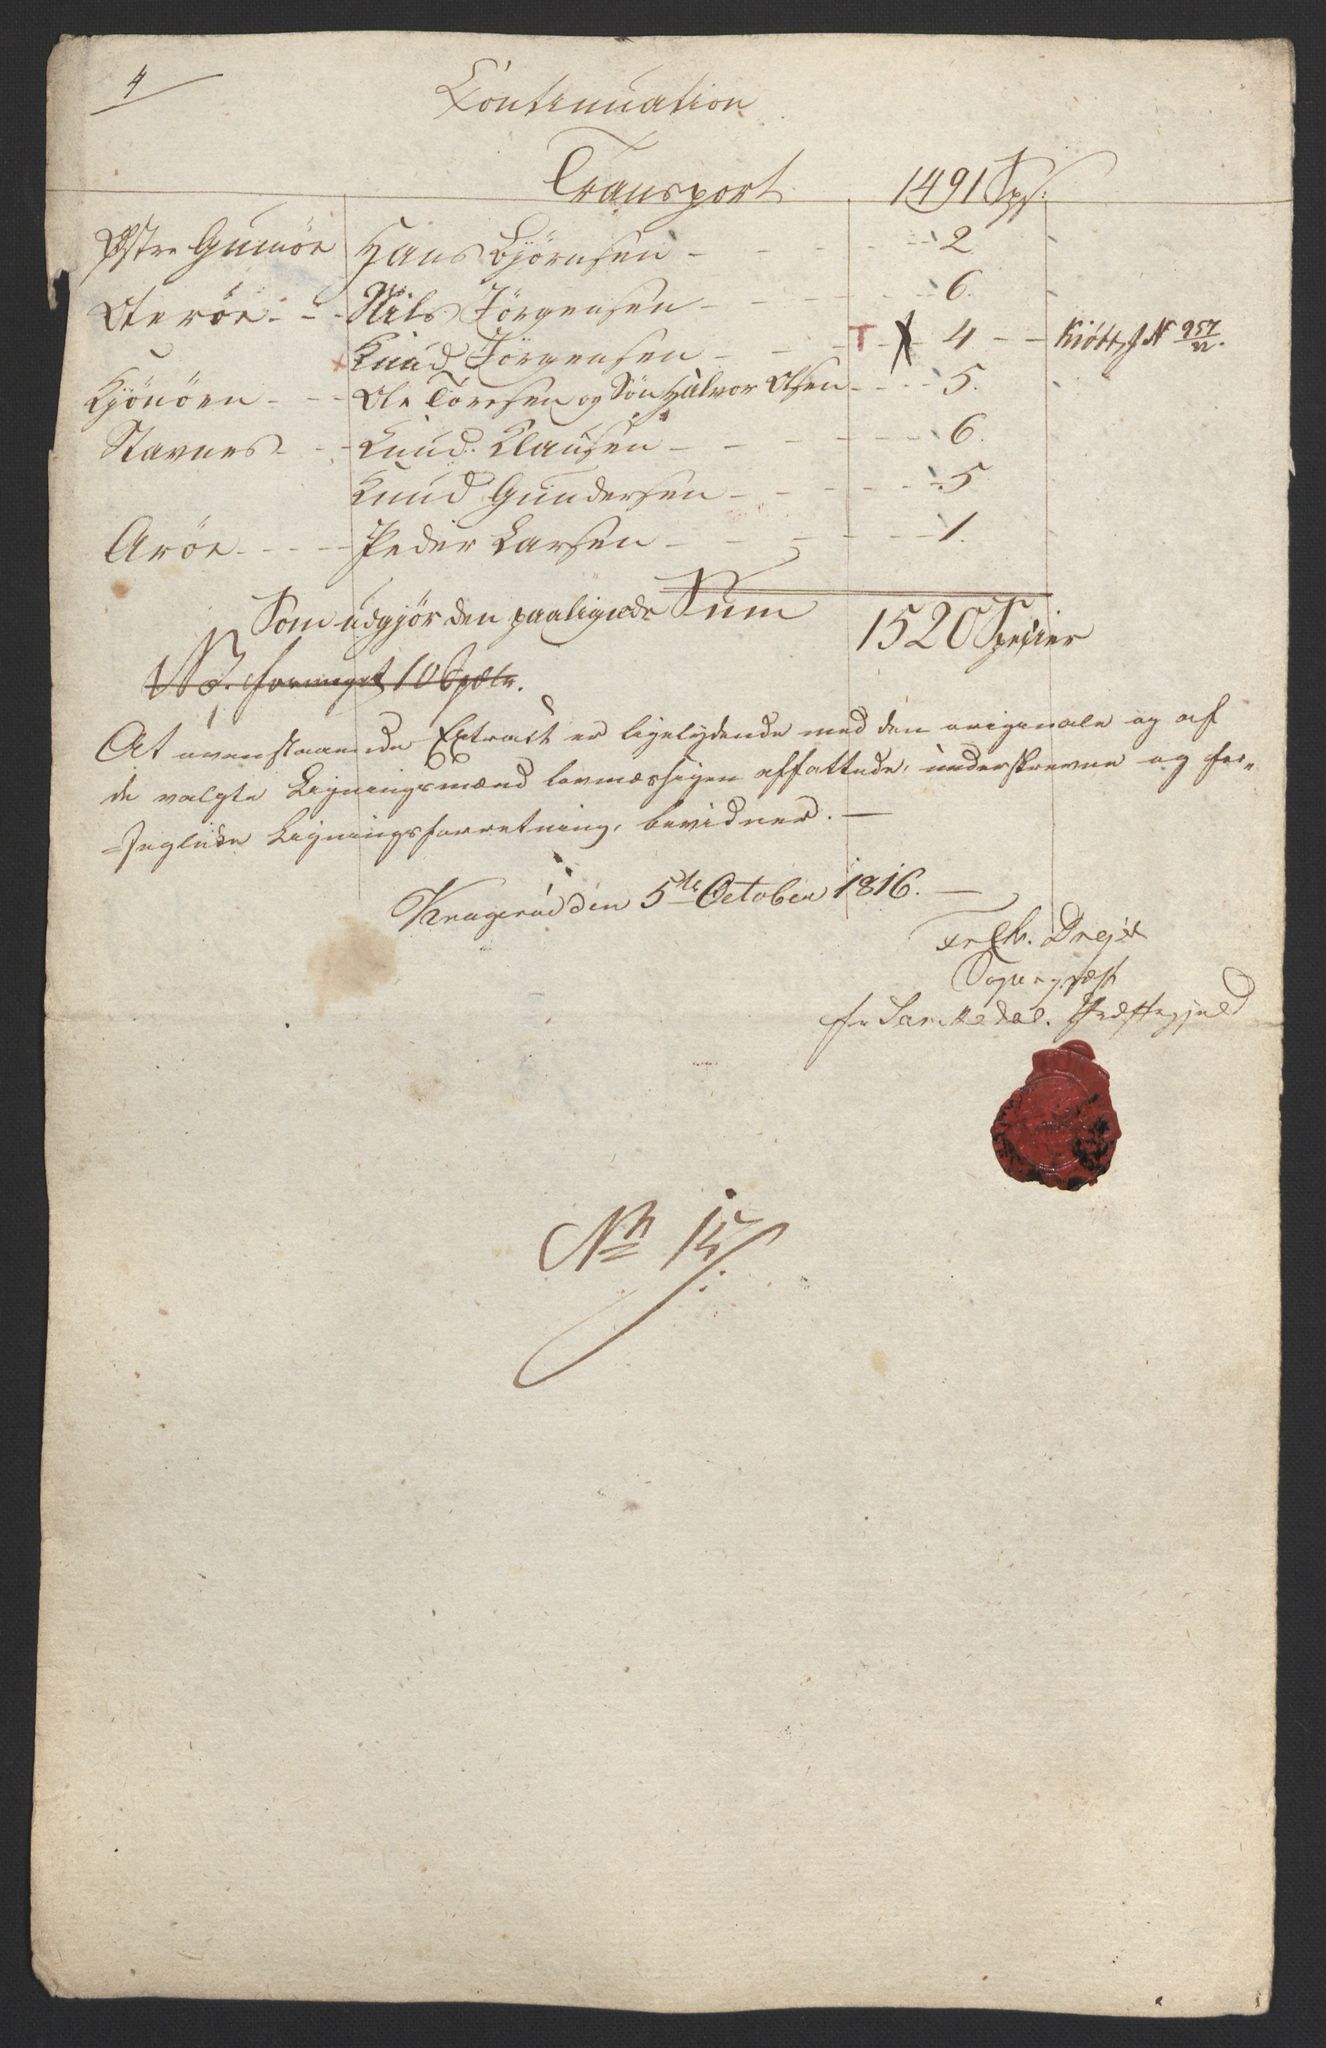 4
Continuation
Transport 1491 Sps:
Østre Gumöe Hans Björnsen - - - 2
Oteröe - - Nils Jörgensen - - - 6.
Knud Jörgensen - - - T X 4 - - Kiött, J N 957/22.
Gjönöen - - Ole Toresen og Sön Halvor Olsen - - - 5.
Stavnes - - Knud Clausen - - - 6.
Knud Gundersen - - - 5
Aröe - - - Peder Larsen - - - 1.
Som udgjör den paalignede Sum 1520 Specier
10 Spdlr.
At ovenstaaende Extract er ligelydende med den originale og af
de valgte Ligningsmænd lovmæssigen affattede, underskrevne og for-
=seglede Ligningsforretning, bevidner. —
Kragerøe den 5te October 1816. —
Fr. Ch. Dreje
Sogneprest
for Sannikedal. Præstegjeld
No 15.